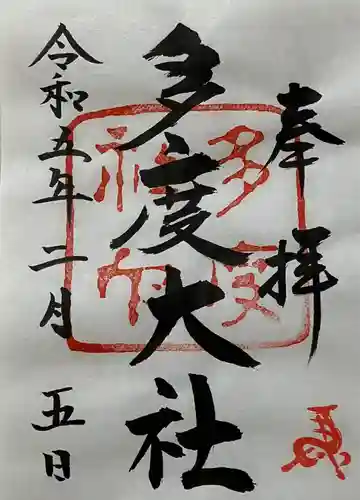 奉拝
多度大社
令和五年二月五日
多度